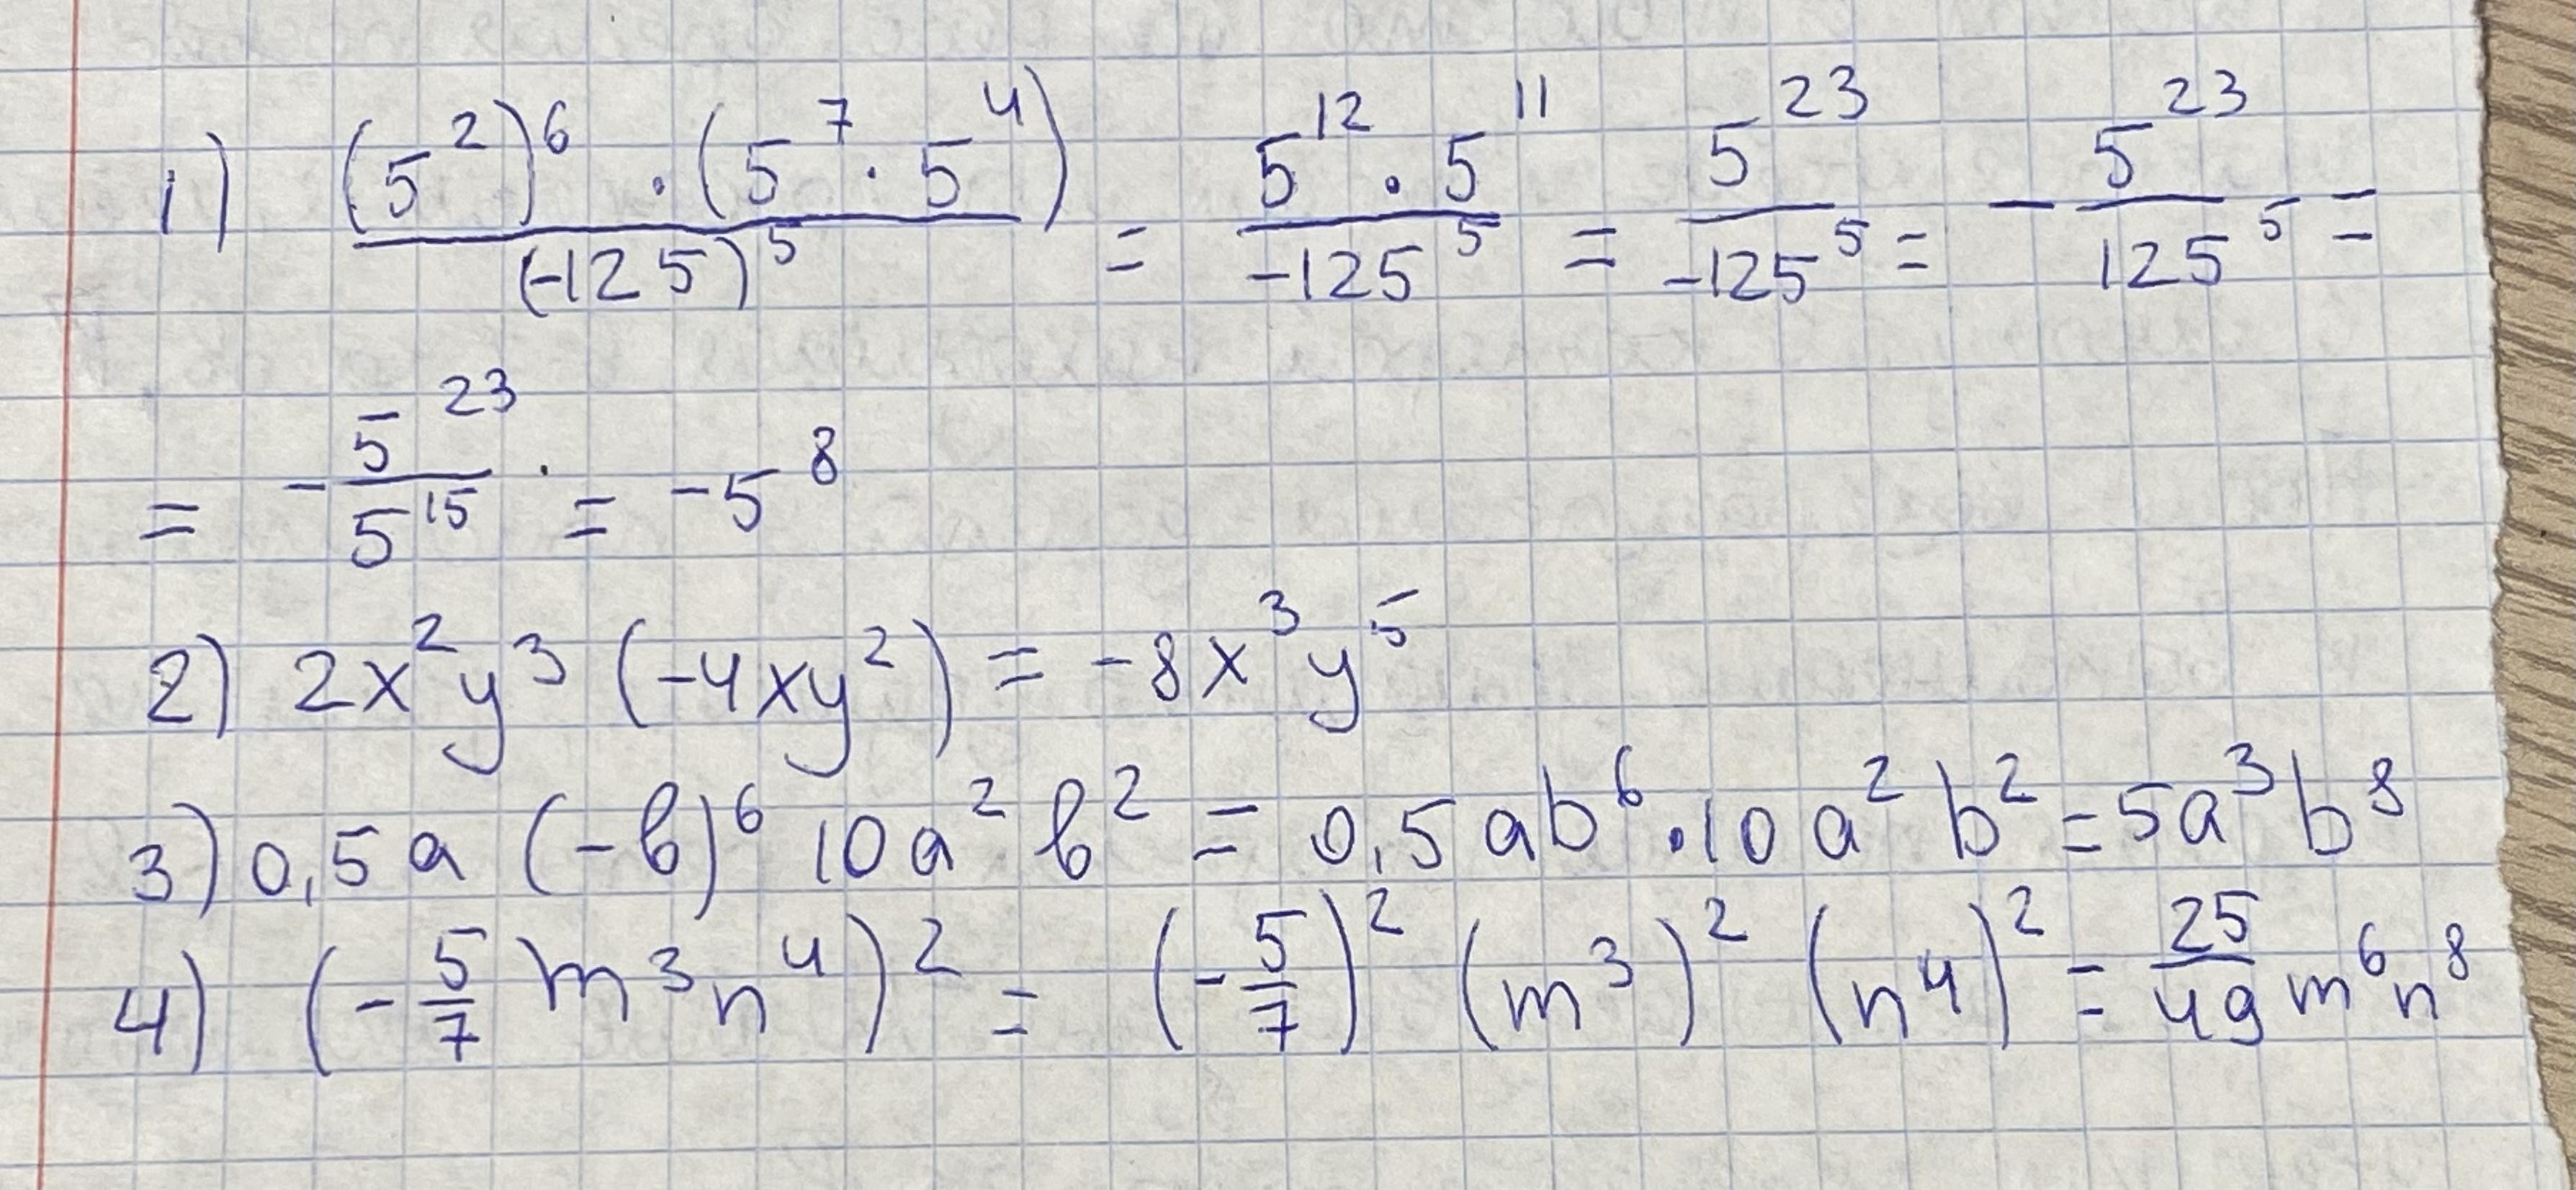 1) (5²)⁶ · (5⁷ · 5⁴) / (-125)⁵ = 5¹² · 5¹¹ / -125⁵ = 5²³ / -125⁵ = - 5²³ / 125⁵ =
= - 5²³ / 5¹⁵ = -5⁸
2) 2x²y³ (-4xy²) = -8x³y⁵
3) 0,5a (-b)⁶ 10a² b² = 0,5ab⁶ · 10a² b² = 5a³b⁸
4) (- 5/7 m³n⁴)² = (- 5/7)² (m³)² (n⁴)² = 25/49 m⁶n⁸